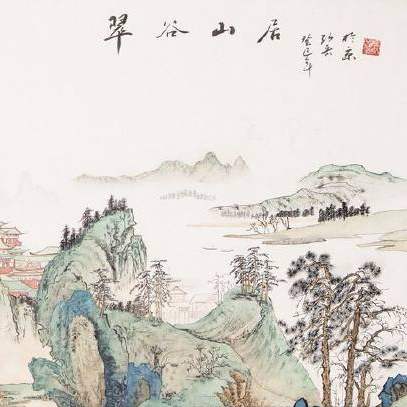 翠谷山居
癸巳年
於京